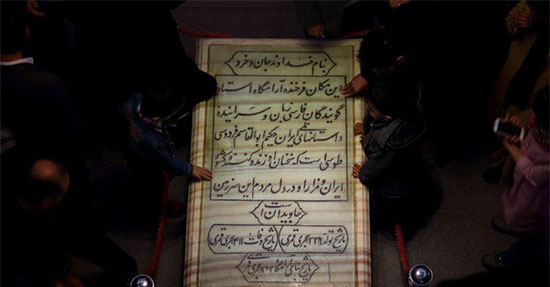 بنام خداوند جان و خرد
این مکان فرخنده آرامگاه استاد
گویندگان فارسی زبان و سراینده
داستانهای ملی ایران حکیم ابوالقاسم فردوسی
طوسی است که سخنان او زنده کننده کشور
ایران و مزار او در دل مردم این سرزمین
جاویدان است
تاریخ تولد ۳۲۳ هجری قمری
تاریخ وفات ۴۱۱ هجری قمری
تاریخ بنای آرامگاه هجری قمری